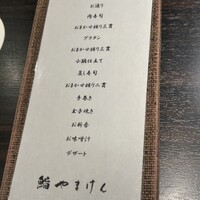 お造り
肉寿司
おまかせ握り三貫
ブラタン
おまかせ握り三貫
小鍋仕立て
蒸し寿司
おまかせ握り三貫
手巻き
玉手焼き
お新香
お味噌汁
デザート
鮨 やまけん